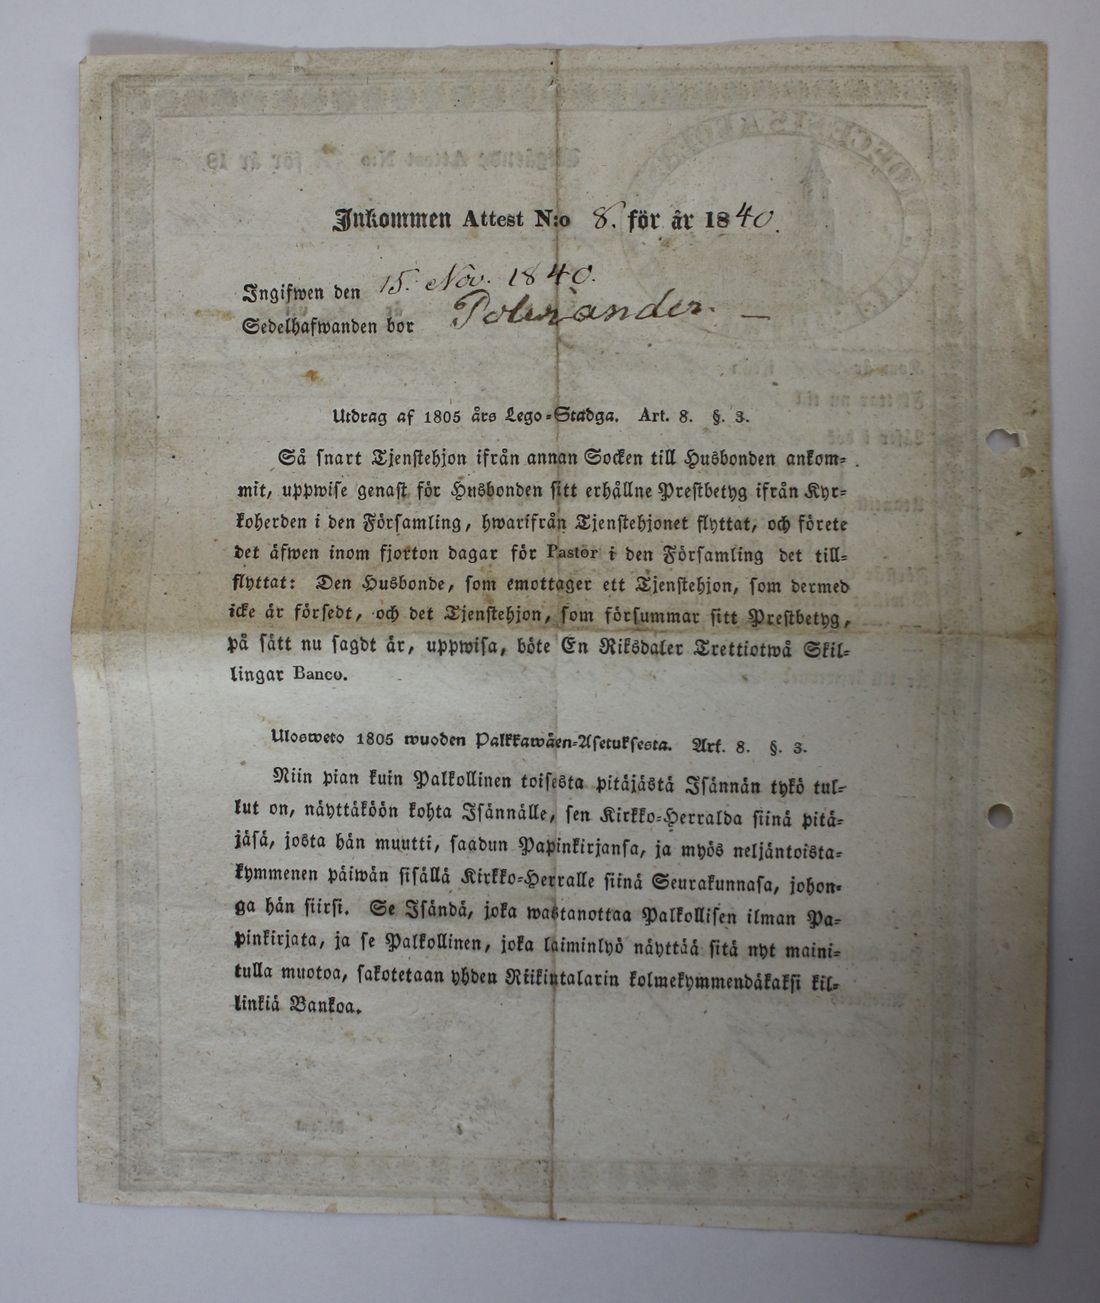 Inkommen Attest N:o 8. för år 1840.
Ingifwen den 15. Nov. 1840.
Sedelhafwanden bor
Utdrag af 1805 års Lego-Stadga. Art. 8. §. 3.
Så snart Tjenstehjon ifrån annan Socken till Husbonden ankom-
mit, uppwise genast för Husbonden sitt erhållne Prestbetyg ifrån Kyr-
koherden i den Församling, hwarifrån Tjenstehjonet flyttat, och förete
det äfwen inom fjorton dagar för Pastor i den Församling det till-
flyttat: Den Husbonde, som emottager ett Tjenstehjon, som dermed
icke är försedt, och det Tjenstehjon, som försummar sitt Prestbetyg,
på sätt nu sagdt är, uppwisa, böte En Riksdaler Trettiotwå Skil-
lingar Banco.
Ulosweto 1805 wuoden Palkkawäen-Asetuksesta. Art. 8. §. 3.
Niin pian kuin Palkollinen toisesta pitäjästä Isännän tykö tul-
lut on, näyttäköön kohta Isännälle, sen Kirkko-Herralda siinä pitä-
jäsä, josta hän muutti, saadun Papinkirjansa, ja myös neljäntoista-
kymmenen päiwän sisällä Kirkko-Herralle siinä Seurakunnasa, johon-
ga hän siirsi. Se Isändä, joka wastanottaa Palkollisen ilman Pa-
pinkirjata, ja se Palkollinen, joka laiminlyö näyttää sitä nyt maini-
tulla muotoa, sakotetaan yhden Riikintalarin kolmekymmendäkaksi kil-
linkiä Bankoa.